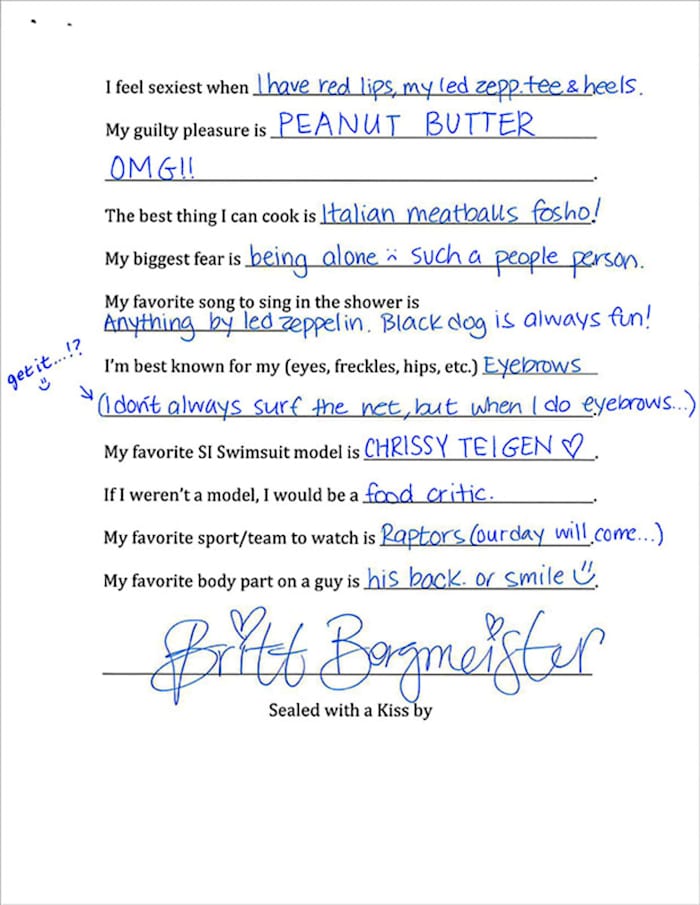 I feel sexiest when I have red lips, my led zepp. tee & heels.
My guilty pleasure is PEANUT BUTTER
OMG!!
The best thing I can cook is Italian meatballs fosho!
My biggest fear is being alone :( such a people person.
My favorite song to sing in the shower is
Anything by led zeppelin. Black dog is always fun!
get it...!?
I'm best known for my (eyes, freckles, hips, etc.) Eyebrows
(I don't always surf the net, but when I do eyebrows...)
My favorite SI Swimsuit model is CHRISSY TEIGEN ♡.
If I weren't a model, I would be a food critic.
My favorite sport/team to watch is Raptors (our day will come...)
My favorite body part on a guy is his back. or smile ☺.
Britt Bergmeister
Sealed with a Kiss by